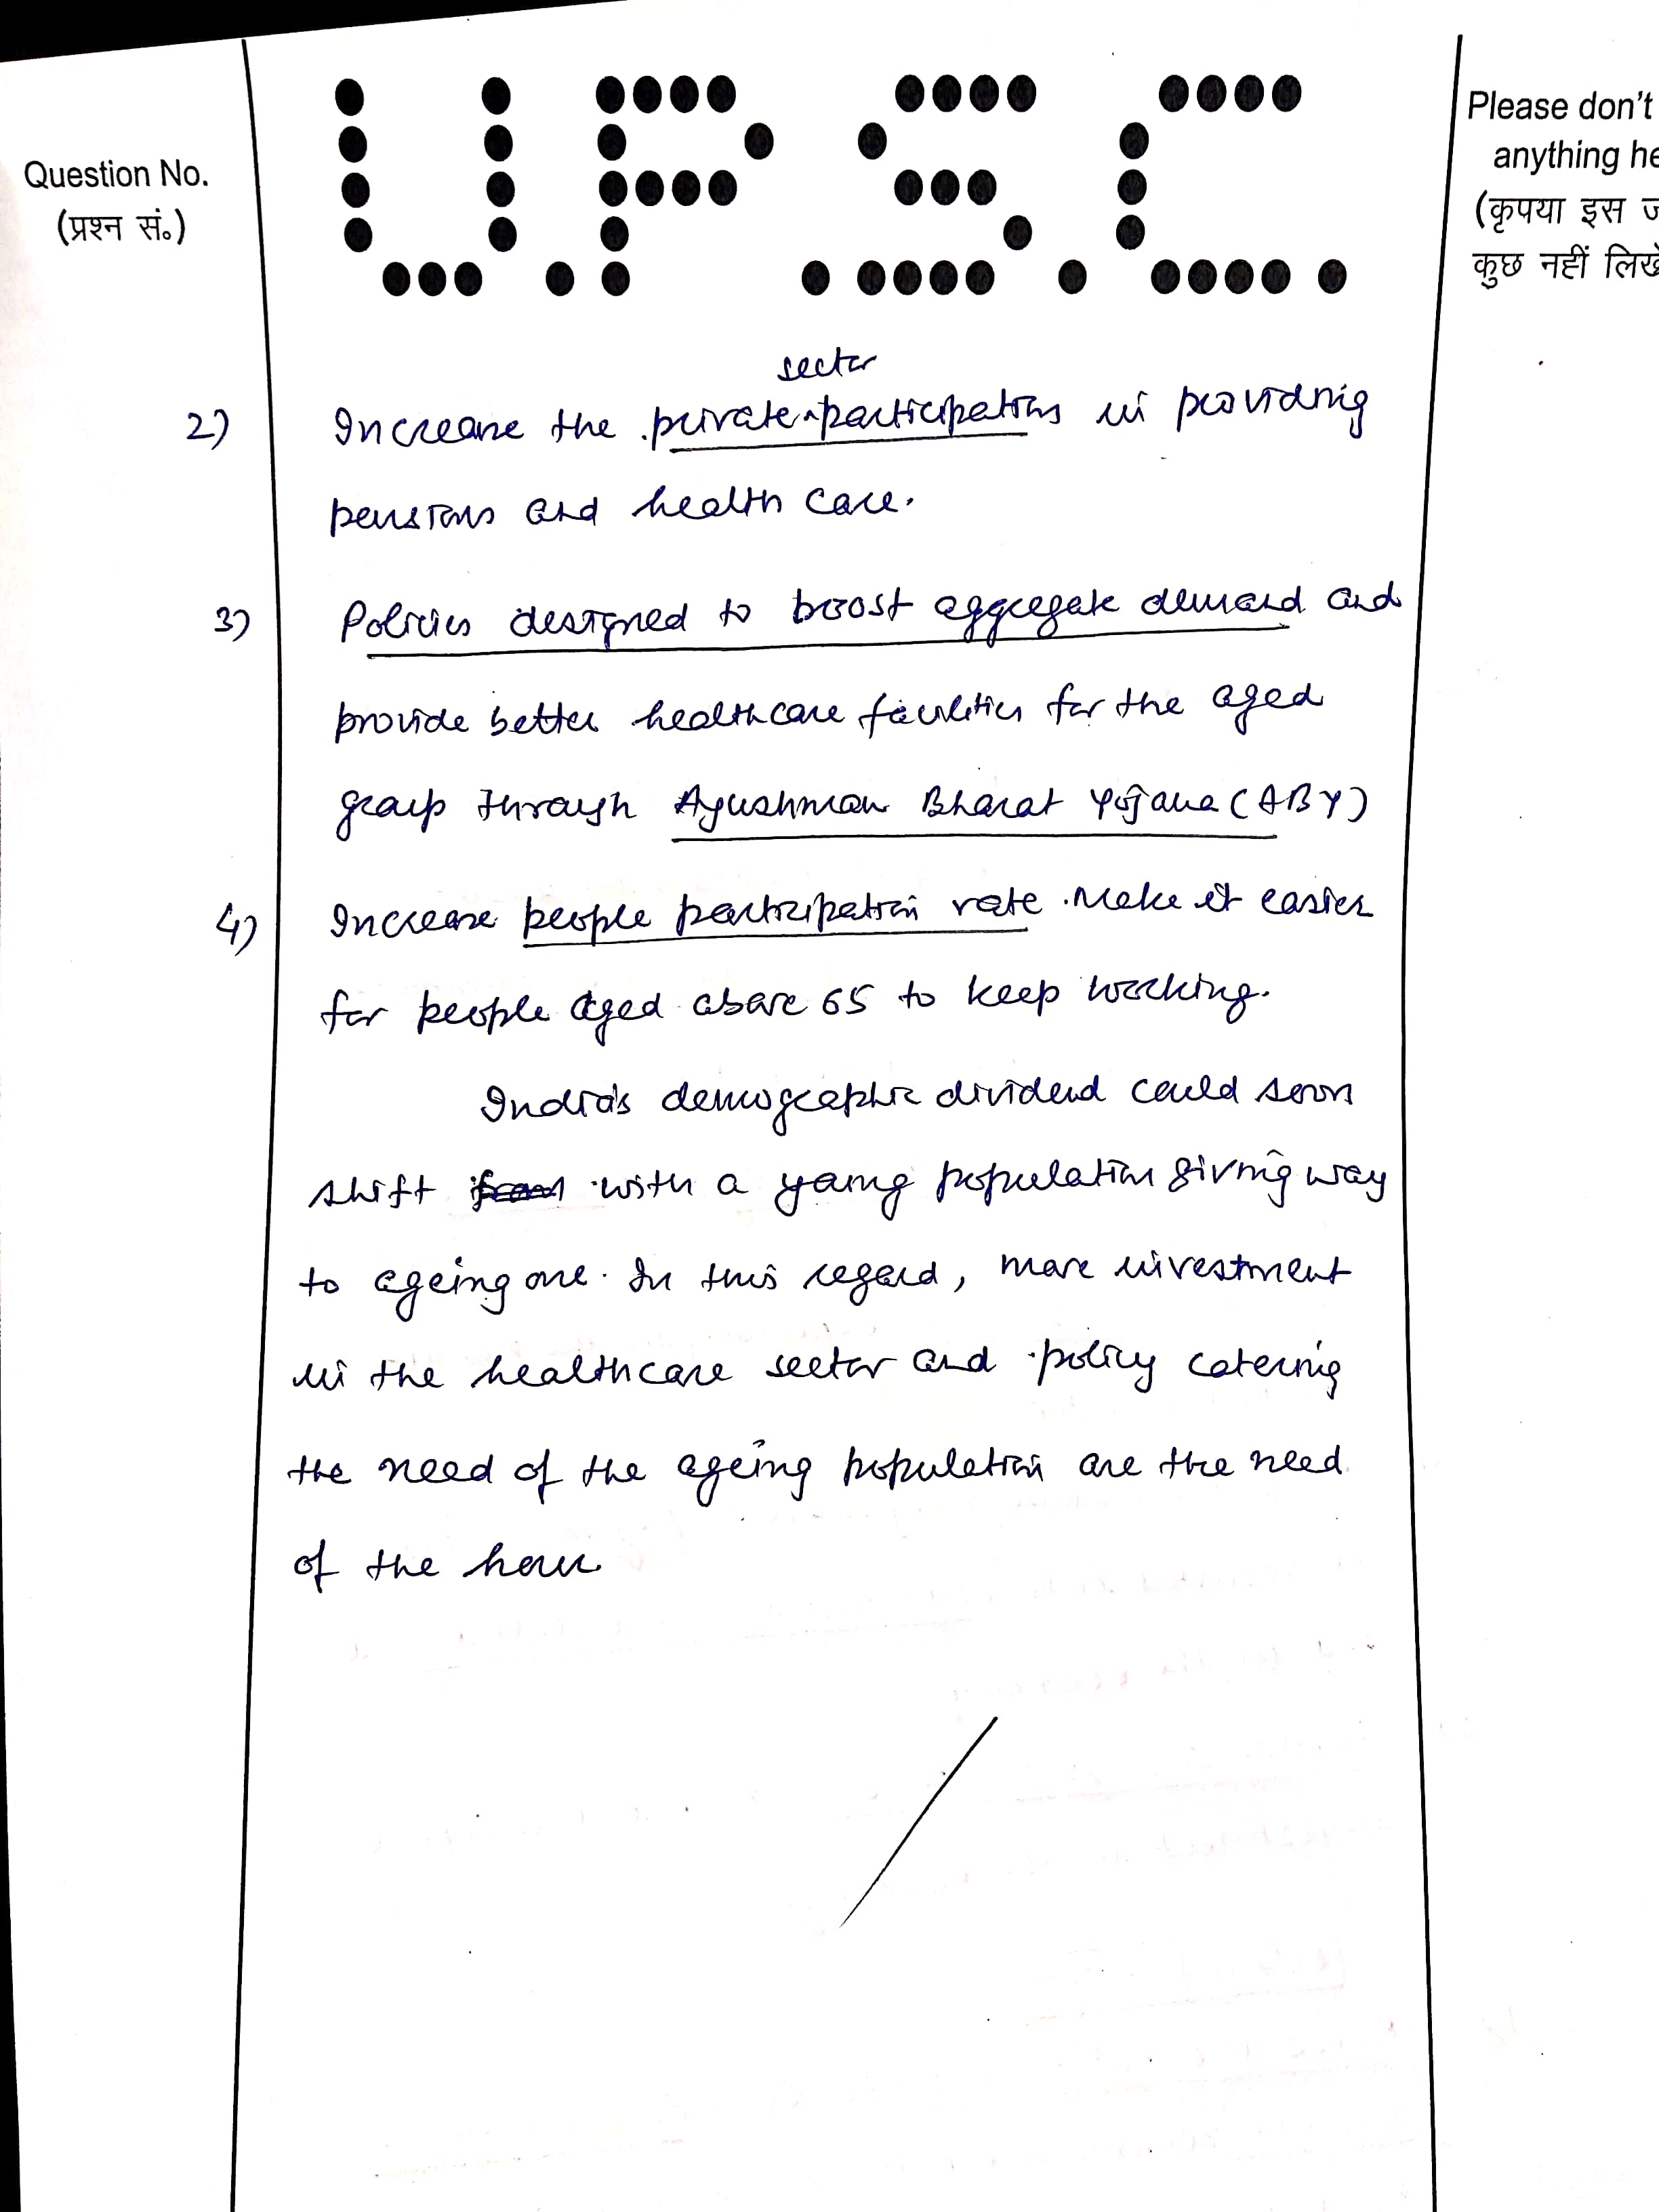 U.P.S.C.
Question No.
(प्रश्न सं.)
Please don't
anything he
(कृपया इस ज
कुछ नहीं लिखे
sector
2) Increase the private ^ participations in providing
pensions and health care.
3) Policies designed to boost aggregate demand and
provide better healthcare facilities for the aged
group through Ayushman Bharat Yojana (ABY)
4) Increase people participation rate. Make it easier
for people aged above 65 to keep working.
India's demographic dividend could soon
shift with a young population giving way
to ageing one. In this regard, more investment
in the healthcare sector and policy catering
the need of the ageing population are the need
of the hour.